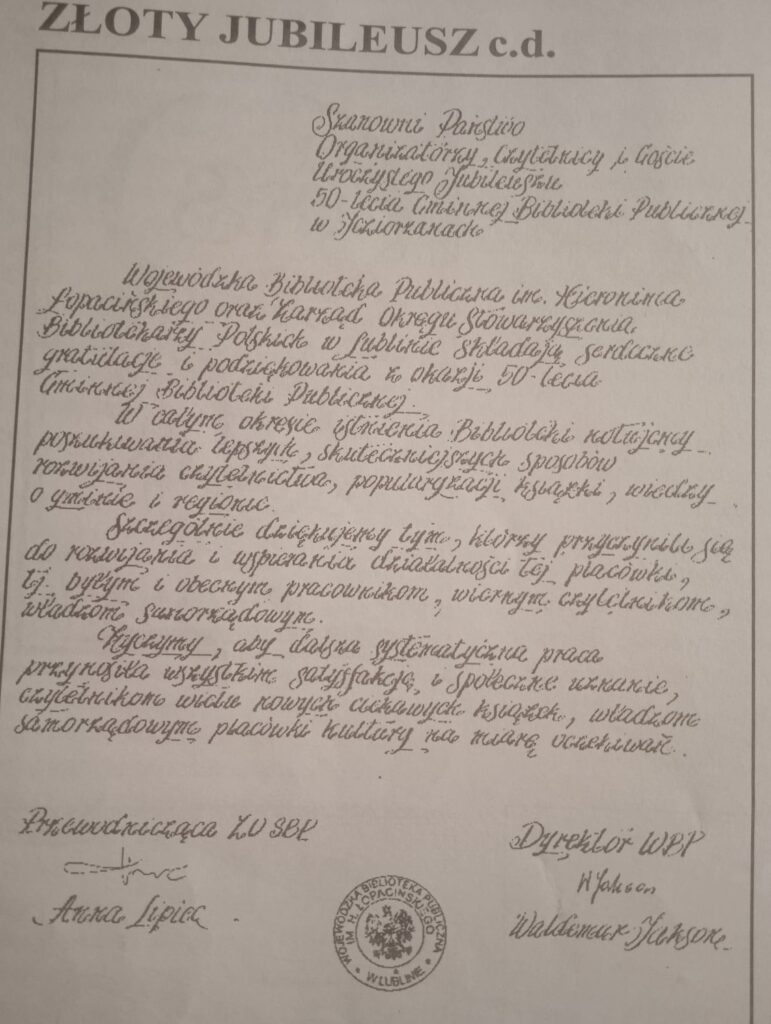 ZŁOTY JUBILEUSZ c.d.
Szanowni Państwo
Organizatorzy, Czytelnicy i Goście
Uroczystego Jubileuszu
50-lecia Gminnej Biblioteki Publicznej
w Jeziorzanach
Wojewódzka Biblioteka Publiczna im. Hieronima
Łopacińskiego oraz Zarząd Okręgu Stowarzyszenia
Bibliotekarzy Polskich w Lublinie składają serdeczne
gratulacje i podziękowania z okazji 50-lecia
Gminnej Biblioteki Publicznej.
W całym okresie istnienia Biblioteki notujemy
poszukiwania lepszych, skuteczniejszych sposobów
rozwijania czytelnictwa, popularyzacji książki, wiedzy
o gminie i regionie.
Szczególnie dziękujemy tym, którzy przyczynili się
do rozwijania i wspierania działalności tej placówki,
tj. byłym i obecnym pracownikom, wiernym czytelnikom,
władzom samorządowym.
Życzymy, aby dalsza systematyczna praca
przynosiła wszystkim satysfakcję, i społeczne uznanie,
czytelnikom wielu nowych ciekawych książek, władzom
samorządowym placówki kultury na miarę oczekiwań.
Przewodnicząca ZO SBP
Anna Lipiec
Dyrektor WBP
W Jakson
Waldemar Jaksone
WOJEWÓDZKA BIBLIOTEKA PUBLICZNA
IM H. ŁOPACIŃSKIEGO
W LUBLINIE